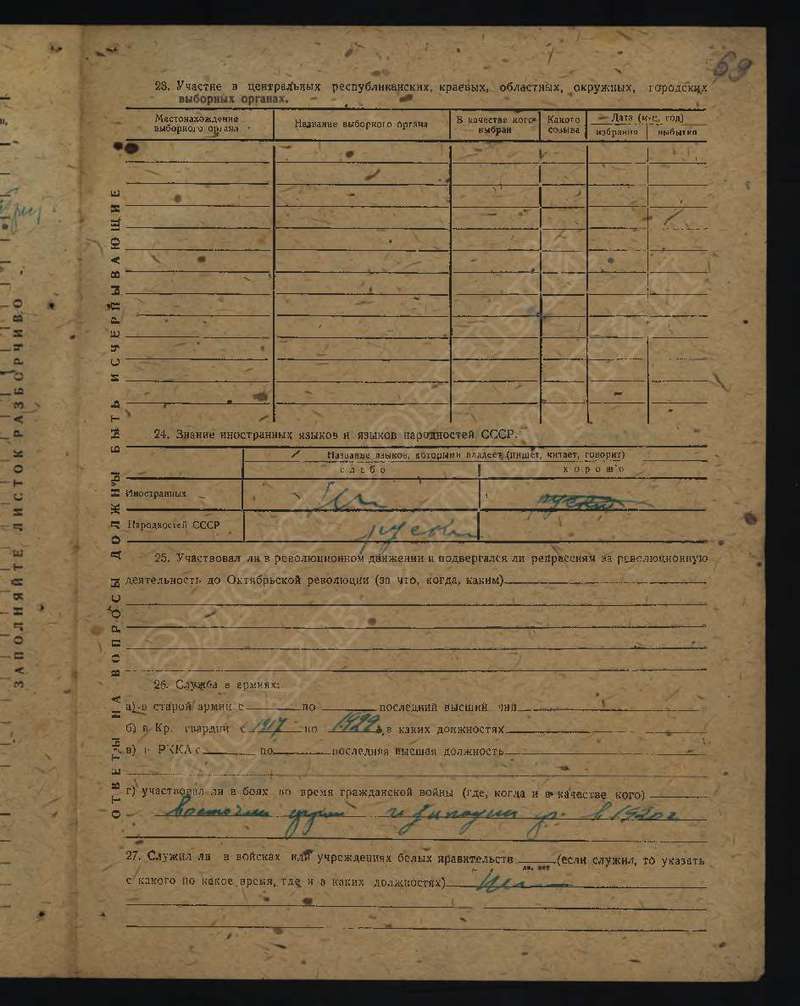 69
23. Участие в центральных республиканских, краевых, областных, окружных, городских
выборных органах.
Местонахождение выборного органа
Название выборного органа
В качестве кого выбран
Какого созыва
Дата (м-ц, год)
избрания
выбытия
24. Знание иностранных языков и языков народностей СССР.
Название языков, которыми владеет (пишет, читает, говорит)
слабо
хорошо
Иностранных
Народностей СССР
русский
25. Участвовал ли в революционном движении и подвергался ли репрессиям за революционную
деятельность до Октябрьской революции (за что, когда, каким)
26. Служба в армиях:
а) в старой армии с по последний высший чин
б) в Кр. гвардии с 1917 по 1922 в каких должностях
в) в РККА с по последняя высшая должность
г) участвовал ли в боях во время гражданской войны (где, когда и в качестве кого)
в 1920 г
27. Служил ли в войсках или учреждениях белых правительств да, нет (если служил, то указать
с какого по какое время, где и в каких должностях)
ОТВЕТЫ НА ВОПРОСЫ ДОЛЖНЫ БЫТЬ ИСЧЕРПЫВАЮЩИЕ
ЗАПОЛНЯЙТЕ ЛИСТОК РАЗБОРЧИВО